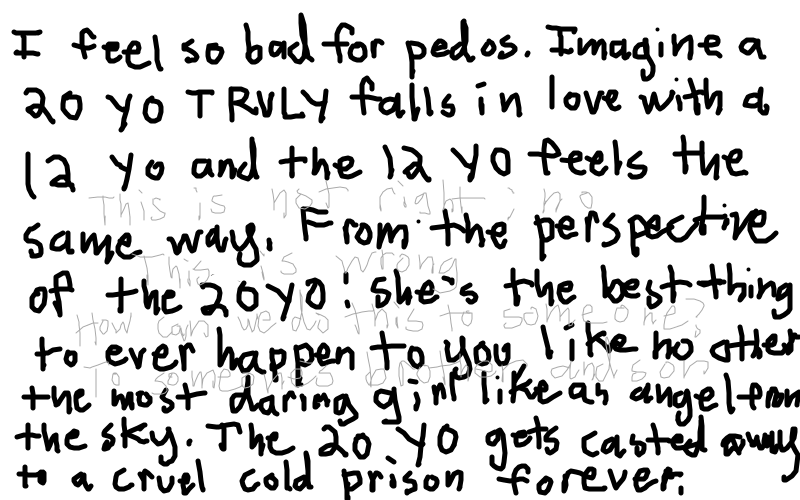 I feel so bad for pedos. Imagine a
20 yo TRULY falls in love with a
12 yo and the 12 yo feels the
This is not right; no
same way. From the perspective
This is wrong
of the 20 yo: she's the best thing
How can we do this to someone?
to ever happen to you like no other
To someones brother and son
the most daring girl like an angel from
the sky. The 20 yo gets casted away
to a cruel cold prison forever.